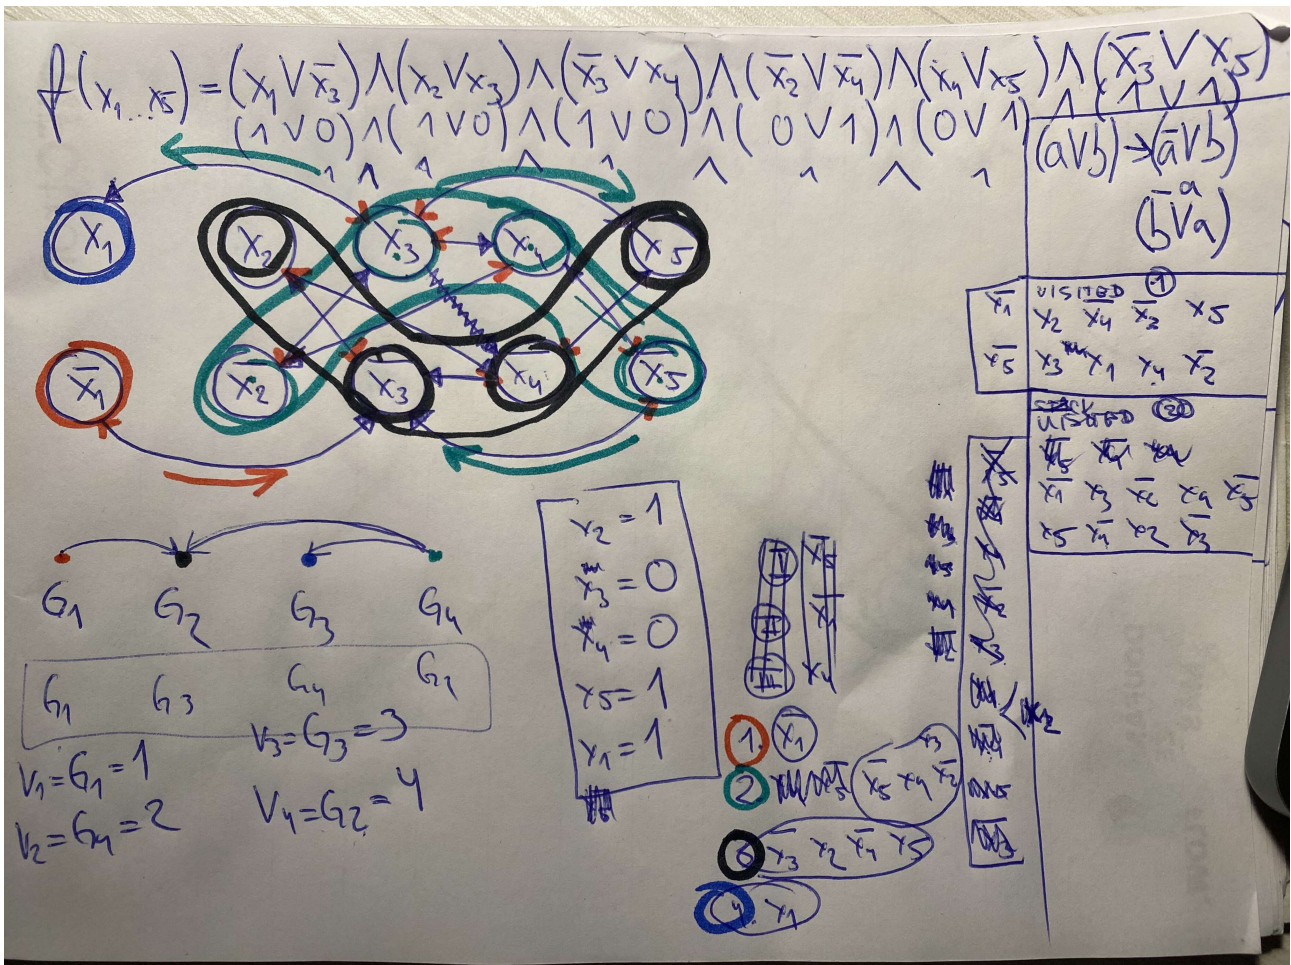 f(x₁...x₅) = (x₁ ∨ x̄₃) ∧ (x₂ ∨ x₃) ∧ (x̄₃ ∨ x₄) ∧ (x̄₂ ∨ x̄₄) ∧ (x₄ ∨ x₅) ∧ (x̄₃ ∨ x₅)
(1 ∨ 0) ∧ (1 ∨ 0) ∧ (1 ∨ 0) ∧ (0 ∨ 1) ∧ (0 ∨ 1) ∧ (1 ∨ 1)
1 ∧ 1 ∧ 1 ∧ 1 ∧ 1
(a∨b) → (ā∨b)
a
(b̄∨a)
x₁ x₂ x₃ x₄ x₅
x̄₁ x̄₂ x̄₃ x̄₄ x̄₅
VISITED 1
x̄₁ x₂ x̄₄ x̄₃ x₅
x̄₅ x₃ x₁ x₄ x̄₂
VISITED 2
x̄₁ x₃ x̄₂ x₄ x̄₅
x₅ x̄₄ x₂ x̄₃
G₁ G₂ G₃ G₄
G₁ G₃ G₄ G₂
V₁=G₁=1
V₂=G₄=2
V₃=G₃=3
V₄=G₂=4
x₂=1
x₃=0
x₄=0
x₅=1
x₁=1
1. x̄₁
2 x̄₅ x₄ x̄₂ x₃
3 x̄₃ x₂ x̄₄ x₅
4. x₁